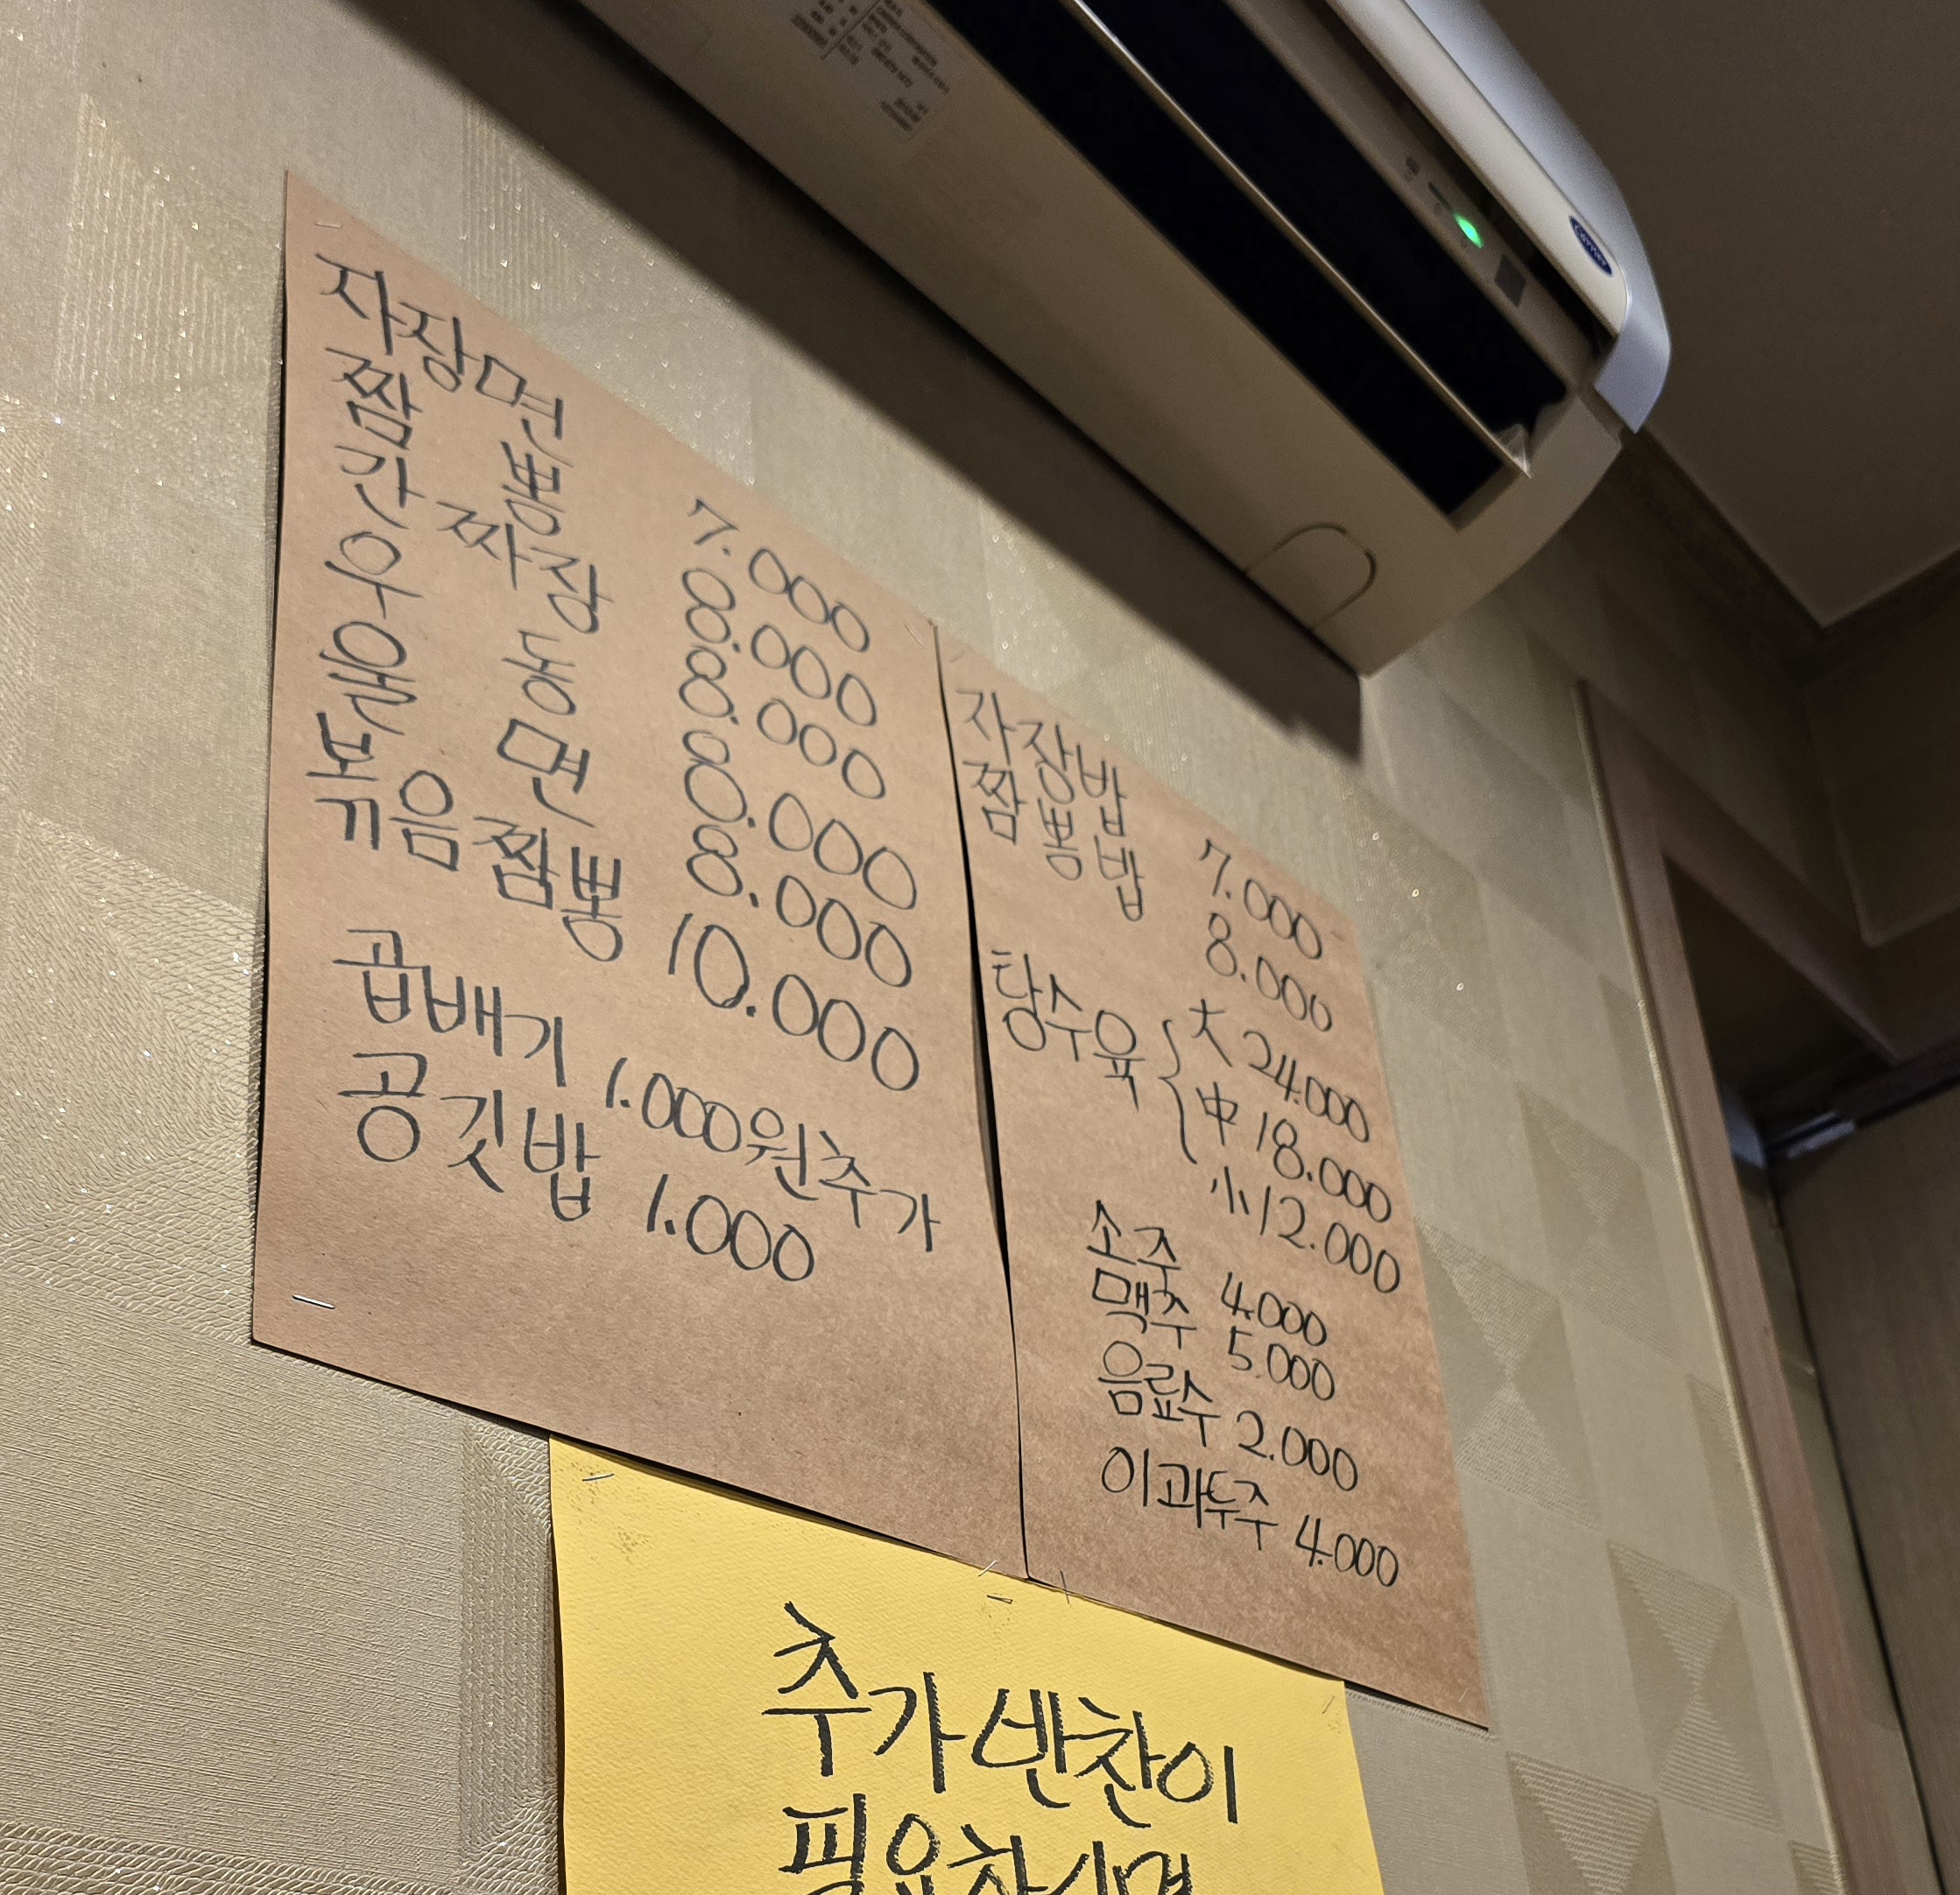 자장면 7.000
짬뽕 8.000
간짜장 8.000
우동 8.000
울면 8.000
볶음짬뽕 10.000
곱배기 1.000원추가
공깃밥 1.000
자장밥 7.000
짬뽕밥 8.000
탕수육 { 大 24.000
中 18.000
小 12.000
소주 4.000
맥주 5.000
음료수 2.000
이과두주 4.000
추가반찬이
필요하시면
Carrier